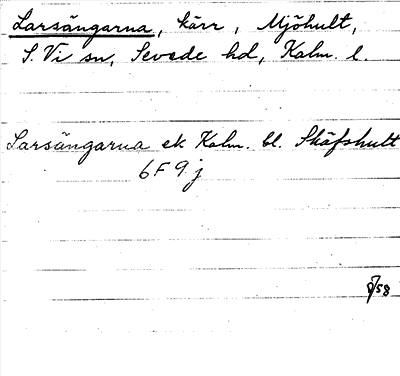 Larsängarna, kärr, Mjöhult,
S. Vi sn, Sevede hd, Kalm. l.
Larsängarna ek Kalm. bl. Skäfshult
6F 9 j
/58